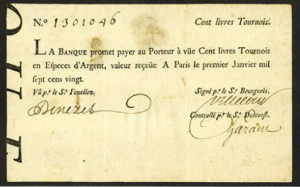 N.º 1301046 Cent livres Tournois.
LA BANQUE promet payer au Porteur à vûe Cent livres Tournois
en Especes d'Argent, valeur reçeüe. A Paris le premier Janvier mil
sept cens vingt.
Vû p.r le S.r Fenellon. Signé p.r le S.r Bourgeois.
Controllé p.r le S.r Durevest.